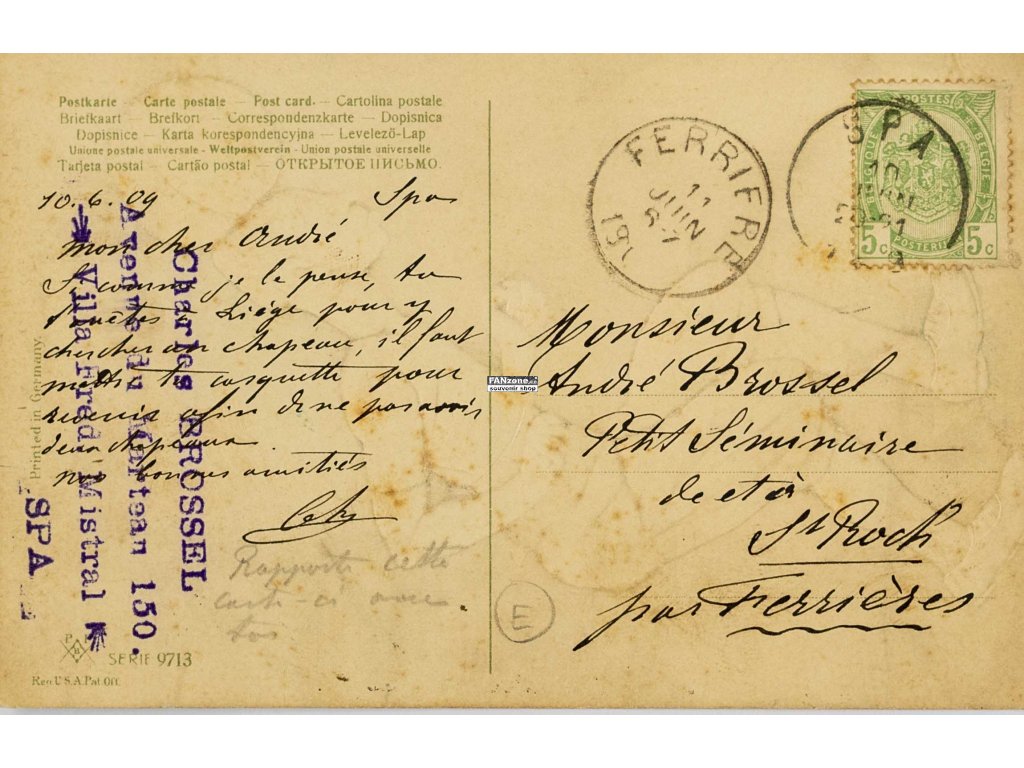 Postkarte – Carte postale – Post card. – Cartolina postale
Briefkaart – Brefkort – Correspondenzkarte – Dopisnica
Dopisnice – Karta korespondencyjna – Levelező-Lap
Unione postale universale - Weltpostverein - Union postale universelle
Tarjeta postal – Cartão postal – ОТКРЫТОЕ ПИСЬМО.
10.6.09 Spa
mon cher André
Si comme je le pense, tu
à Liége pour y
chercher un chapeau, il faut
mettre ta casquette pour
revenir afin de ne pas avoir
deux chapeaux
nos bonnes amitiés
Rapporte cette
carte-ci avec
toi
Charles BROSSEL
Avenue du Marteau 150.
Villa Fred Mistral
SPA
Printed in Germany.
SERIE 9713
Reg. U.S.A. Pat. Off.
FERRIERE
11
JUIN
SPA
10
JUIN
POSTES
BELGIQUE
BELGIE
5c 5c
POSTERIJ
FANzone
souvenir shop
Monsieur
André Brossel
Petit Séminaire
de et à
St Roch
par Ferrières
E